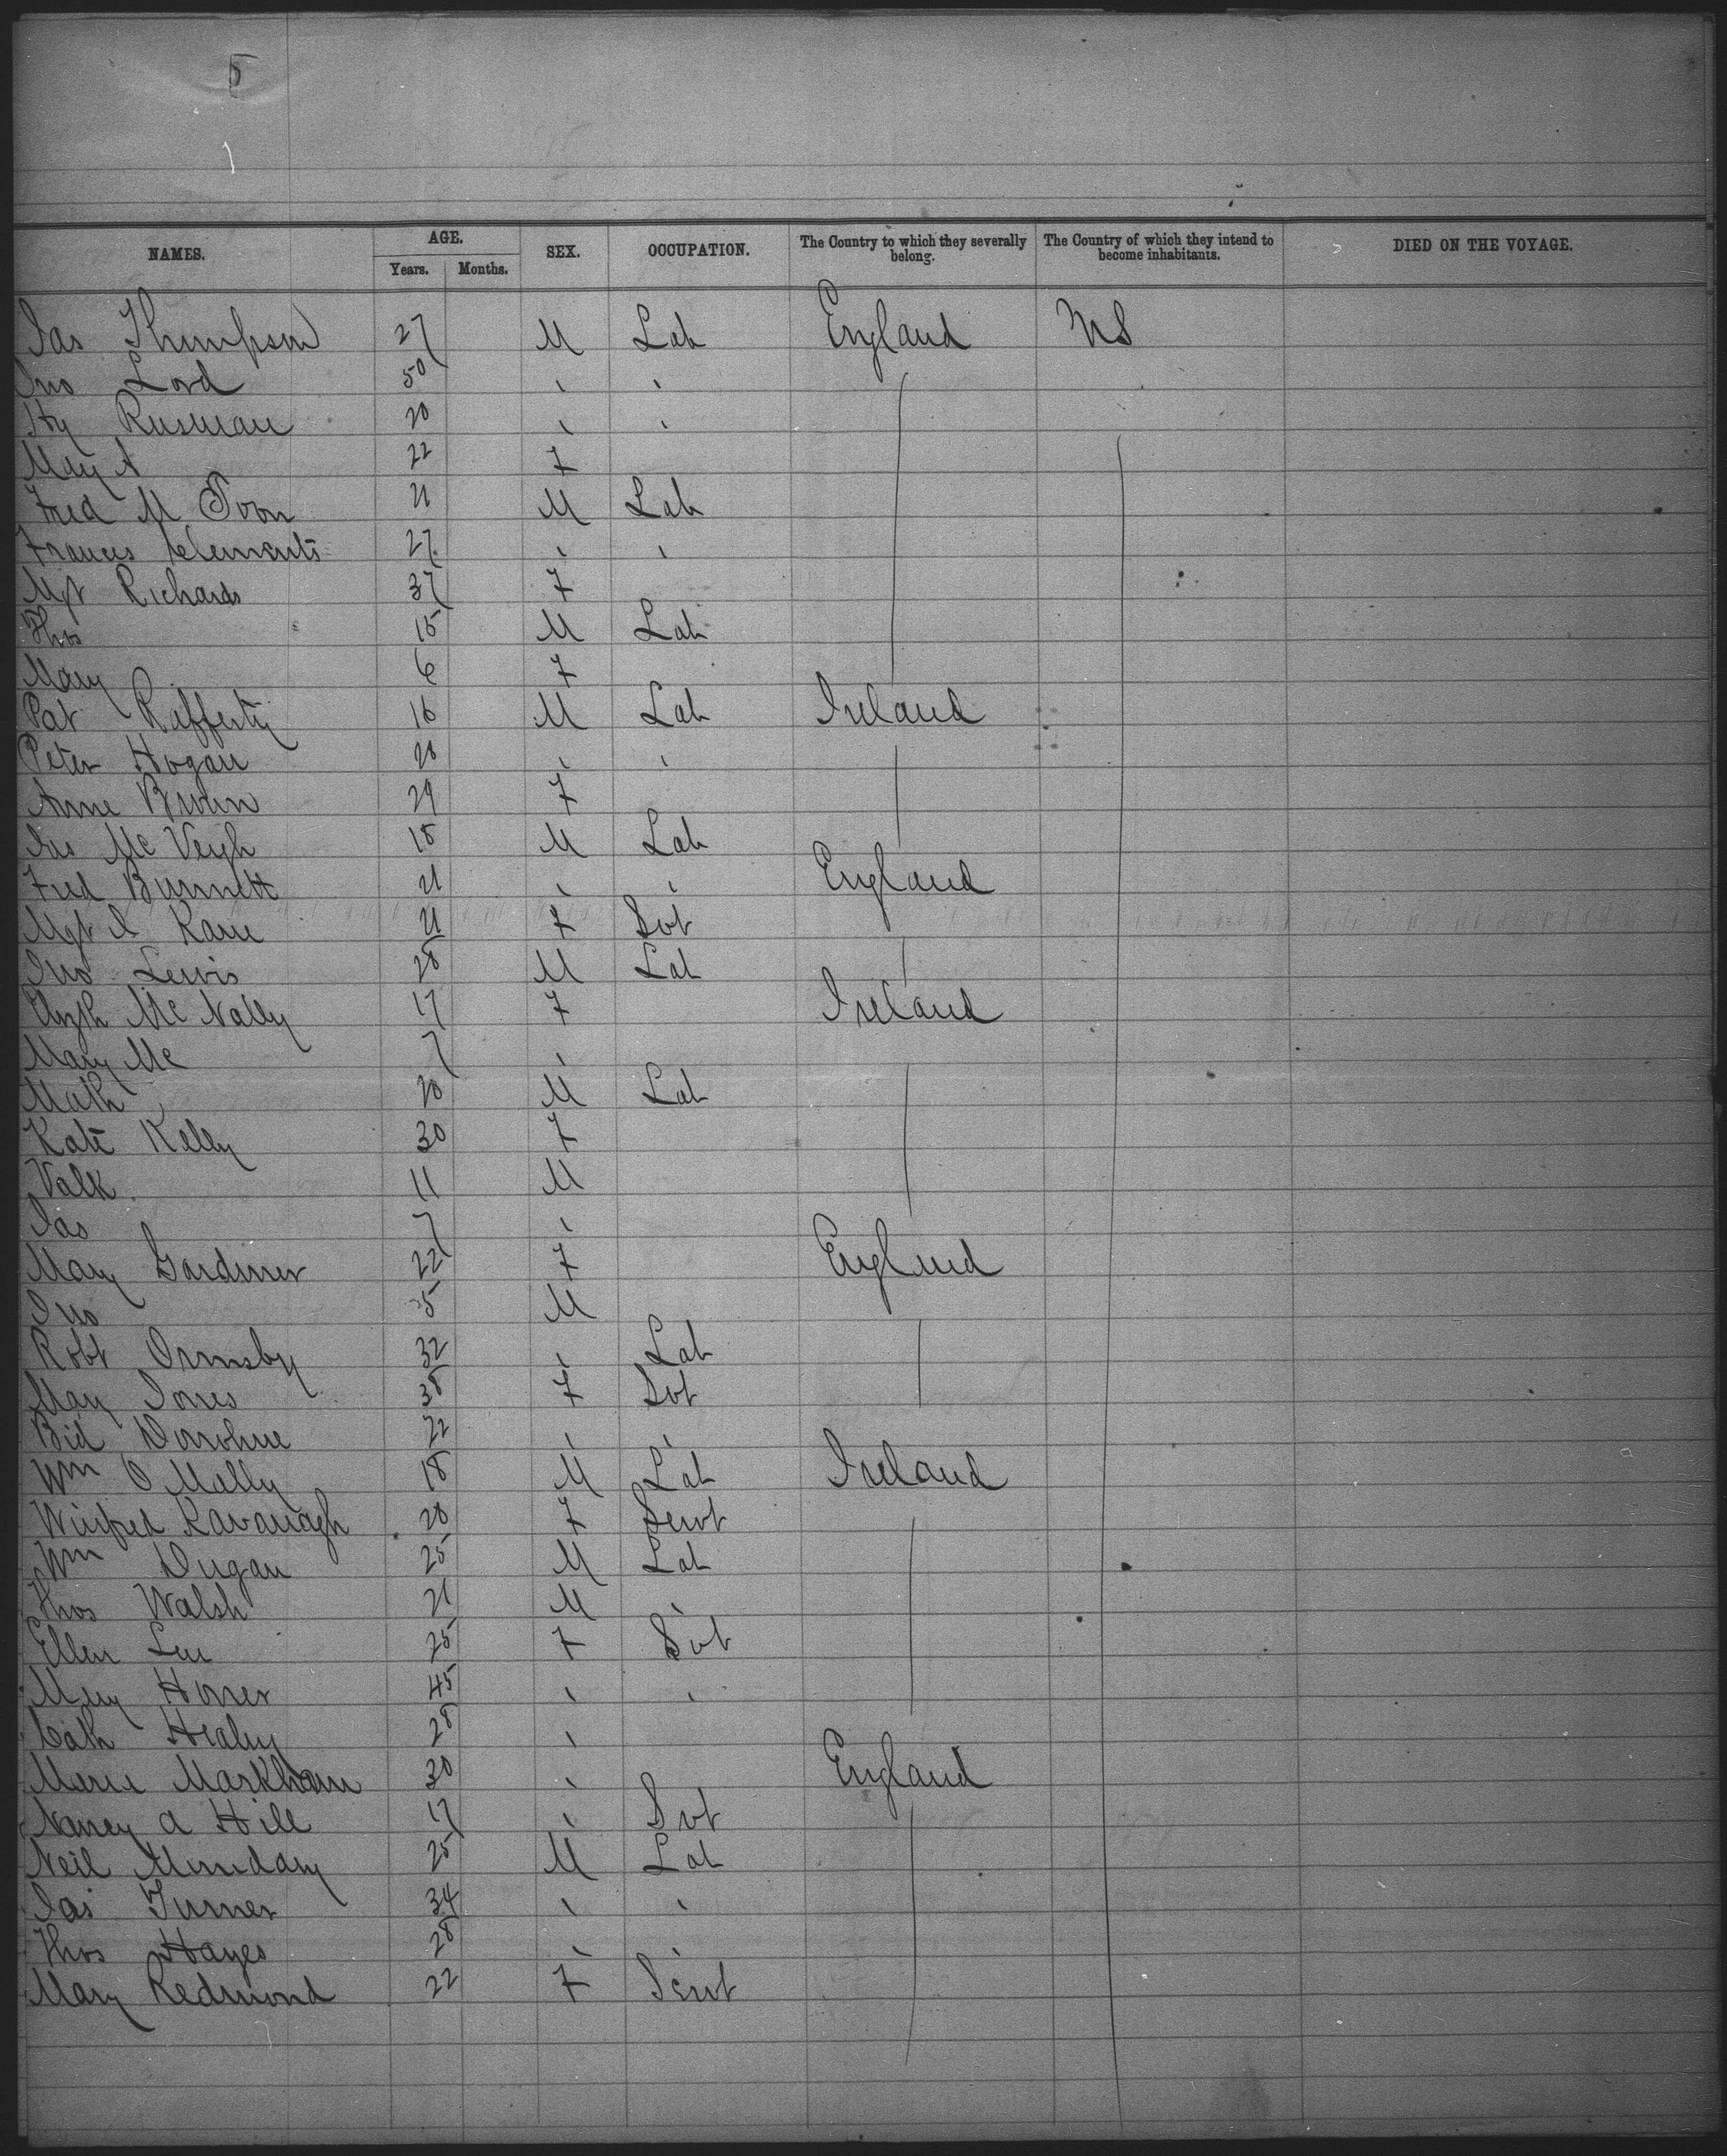 5
NAMES. AGE. Years. Months. SEX. OCCUPATION. The Country to which they severally belong. The Country of which they intend to become inhabitants. DIED ON THE VOYAGE.
Jas Thompson 27 M Lab England US
Jno Lord 50 " "
Hy Rusman 20 " "
May A 22 F
Fred M Toon 21 M Lab
Frances Clements 27 " "
Mgt Richards 37 F
Thos 15 M Lab
Mary 6 F
Pat Rafferty 16 M Lab Ireland
Peter Hogan 20 " "
Anne Brown 29 F
Jas Mc Veigh 18 M Lab
Fred Burnett 21 " " England
Mgt J Kane 21 F Svt
Jno Lewis 28 M Lab
Elizth Mc Nally 17 F Ireland
Mary Mc 7 "
Math 20 M Lab
Kate Kelly 30 F
Valk 11 M
Jas 7 "
Mary Gardiner 22 F England
Jno 5 M
Robt Ormsby 32 " Lab
Mary Jones 38 F Svt
Bid Donohue 22 " "
Wm O Mally 18 M Lab Ireland
Winifred Kavanagh 20 F Servt
Wm Dugan 25 M Lab
Thos Walsh 21 M "
Ellen Lee 25 F Svt
Mary Horner 45 " "
Cath Healy 28 "
Marie Markham 30 " England
Nancy A Hill 17 " Svt
Neil Munday 25 M Lab
Jas Turner 34 " "
Thos Hayes 28 " "
Mary Redmond 22 F Servt